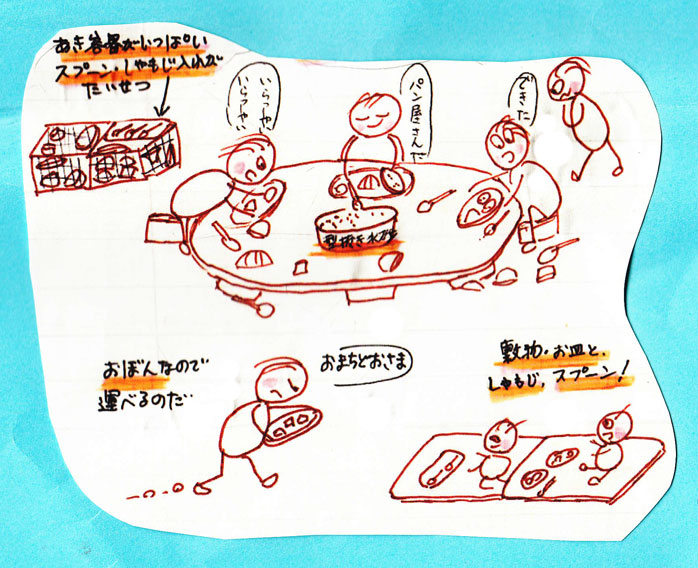 あき容器がいっぱい
スプーン、しゃもじ入れが
たいせつ
いらっしゃい
いらっしゃい
パン屋さんだ
できた
型抜き水砂
おぼんなので
運べるのだ
おまちどおさま
敷物・お皿と、
しゃもじ、スプーン！